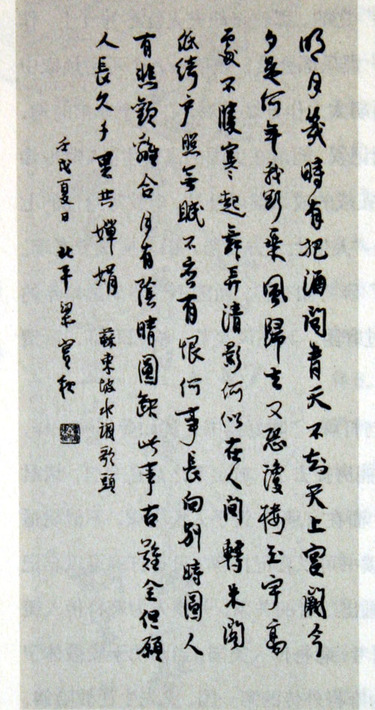 明月幾時有把酒問青天不知天上宮闕今
夕是何年我欲乘風歸去又恐瓊樓玉宇高
處不勝寒起舞弄清影何似在人間轉朱閣
低綺戶照無眠不應有恨何事長向別時圓人
有悲歡離合月有陰晴圓缺此事古難全但願
人長久千里共嬋娟
蘇東坡水調歌頭
壬戌夏日 北平 梁實秋